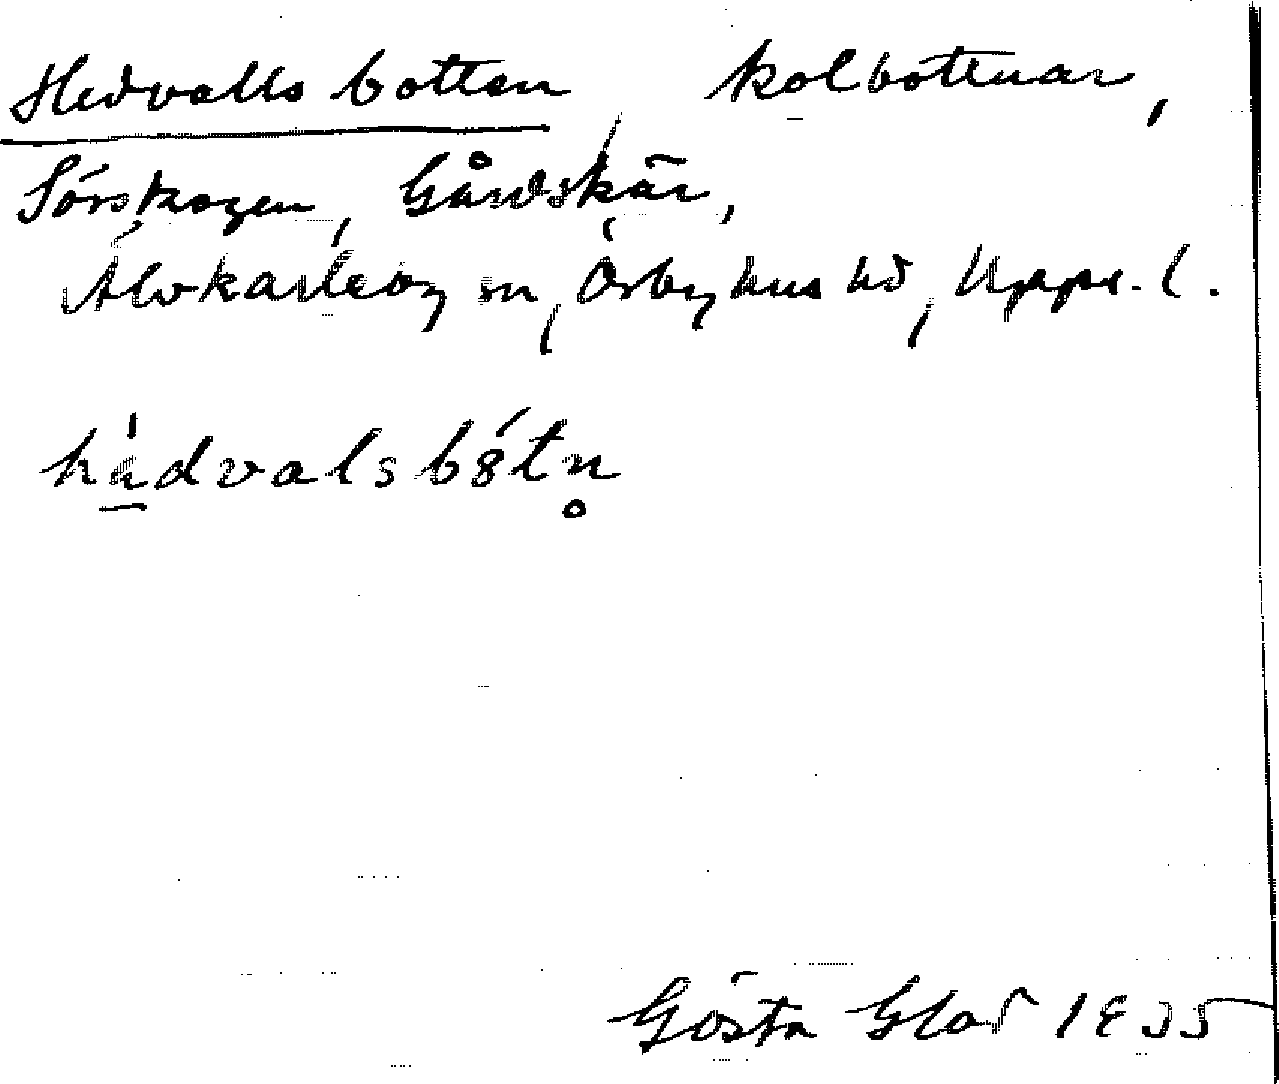 Hedvalls botten, kolbottnar,
Sörskogen, Gårdskär,
Älvkarleby sn, Örbyhus hd, Upps. l.
hädvalsbótn̥
Gösta Glad 1935